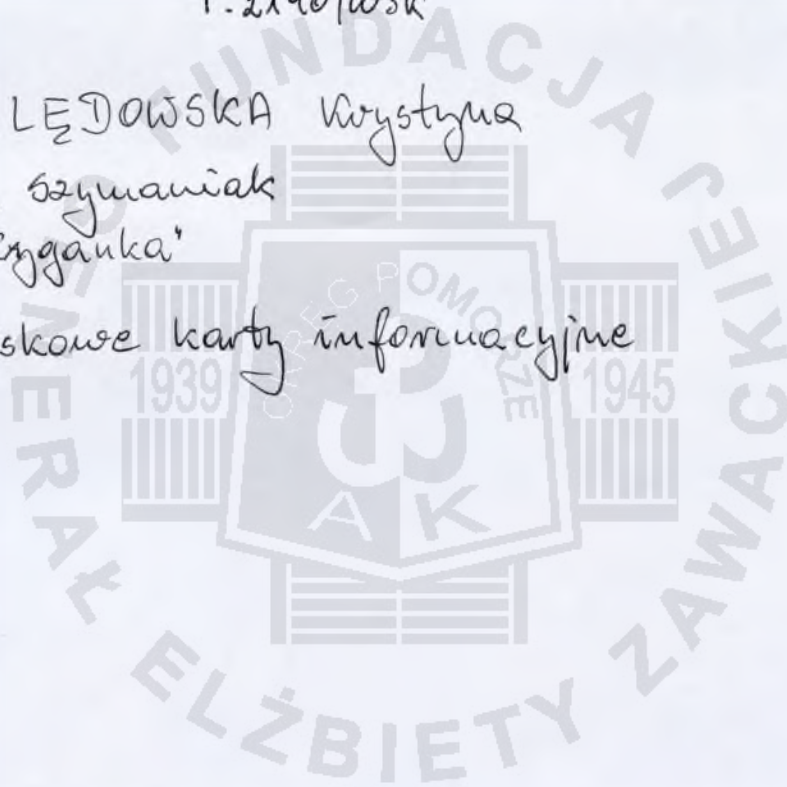 LĘDOWSKA Krystyna
szymaniak
yganka"
skowe karty informacyjne
FUNDACJA
GENERAŁ ELŻBIETY ZAWACKIEJ
OKRĘG POMORZE
1939
1945
A K